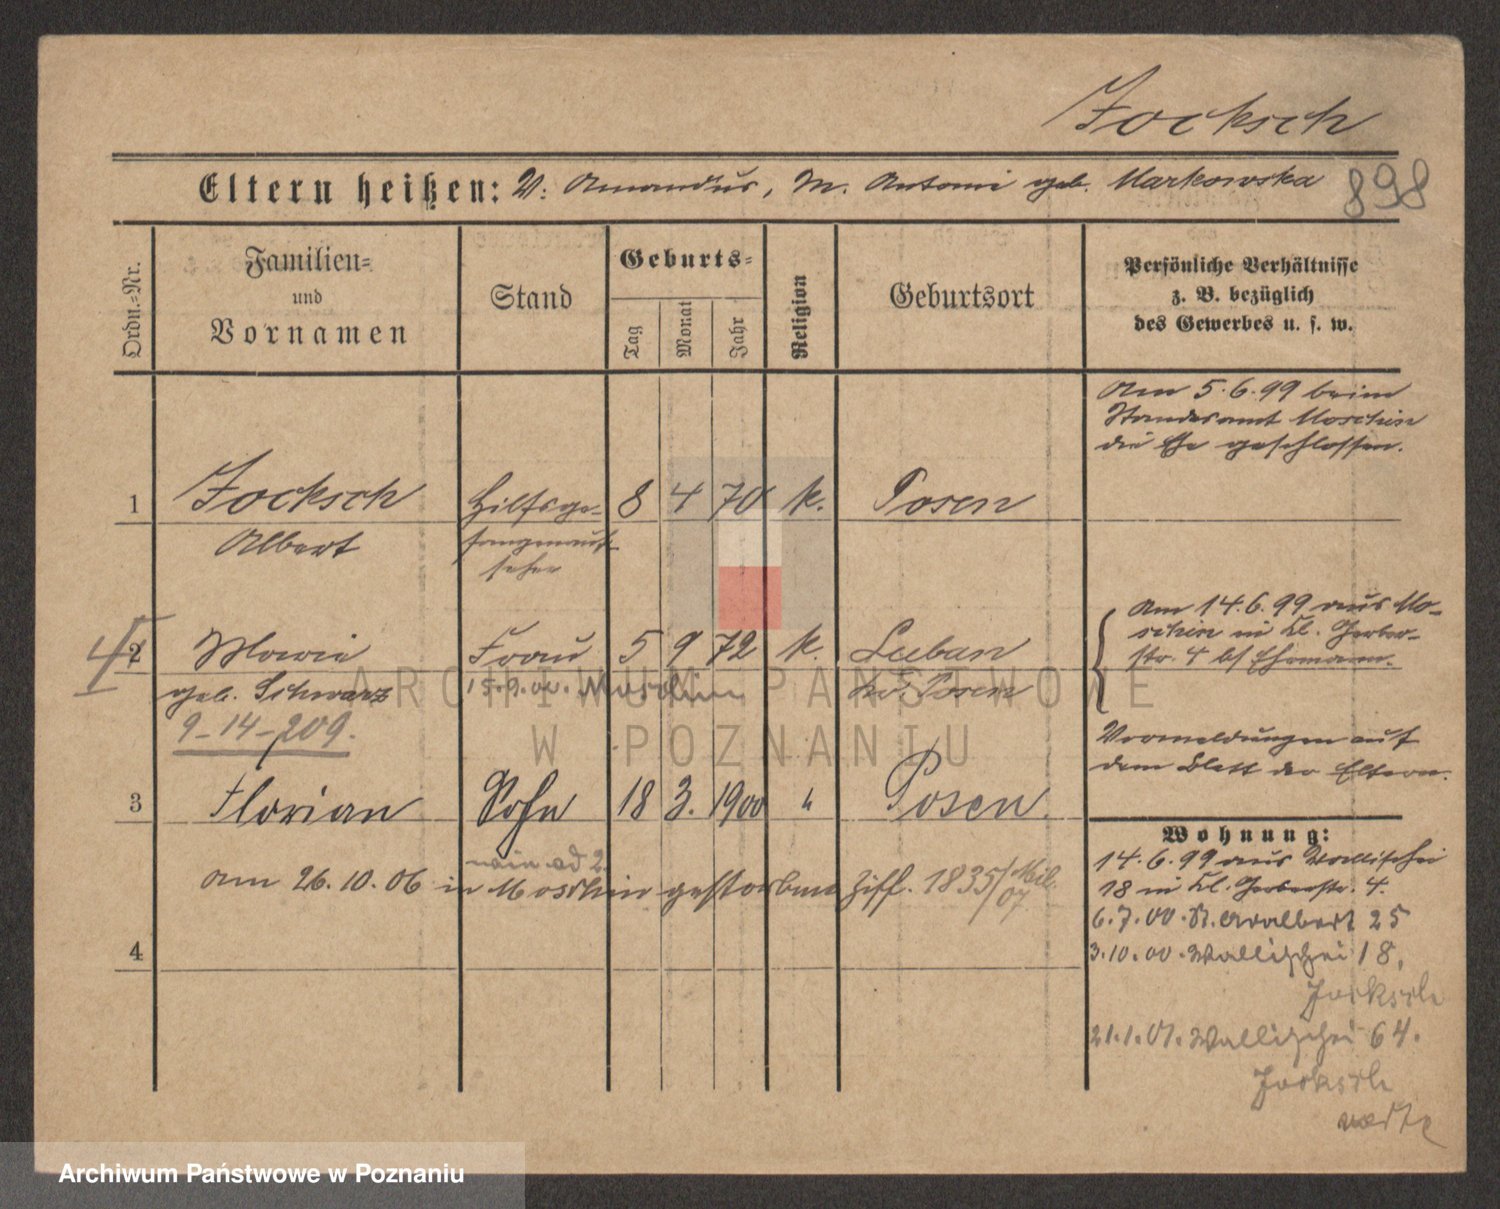 Jocksch
Eltern heißen: V. Amandus, M. Antonie geb. Markowska
898
Ordn.=Nr.
Familien=
und
Vornamen
Stand
Geburts=
Tag
Monat
Jahr
Religion
Geburtsort
Persönliche Verhältnisse
z. B. bezüglich
des Gewerbes u. s. w.
Am 5.6.99 beim
Standesamt Moschin
die Ehe geschlossen.
1
Jocksch
Hilfsge-
8 4 70 k. Posen
Albert
fangenauf-
seher
Am 14.6.99 aus Mo-
schin in Kl. Gerber-
str. 4 b/ Ehemann.
2
Marie
Frau
5 9 72 k. Luban
geb. Schwarz
15.9.00. Moschin
Kr. Posen
9-14-209.
Vormeldungen auf
dem Blatt der Eltern.
3
Florian
Sohn
18 3. 1900 " Posen.
Wohnung:
14.6.99 aus Wallischei
18 in Kl. Gerberstr. 4.
am 26.10.06 in Moschin gestorben Ziff. 1835/Mil.
07
6.7.00. St. Adalbert 25
3.10.00. Wallischei 18,
Jocksch
4
21.1.01. Wallischei 64.
Jocksch
ARCHIWUM PAŃSTWOWE
W POZNANIU
Archiwum Państwowe w Poznaniu